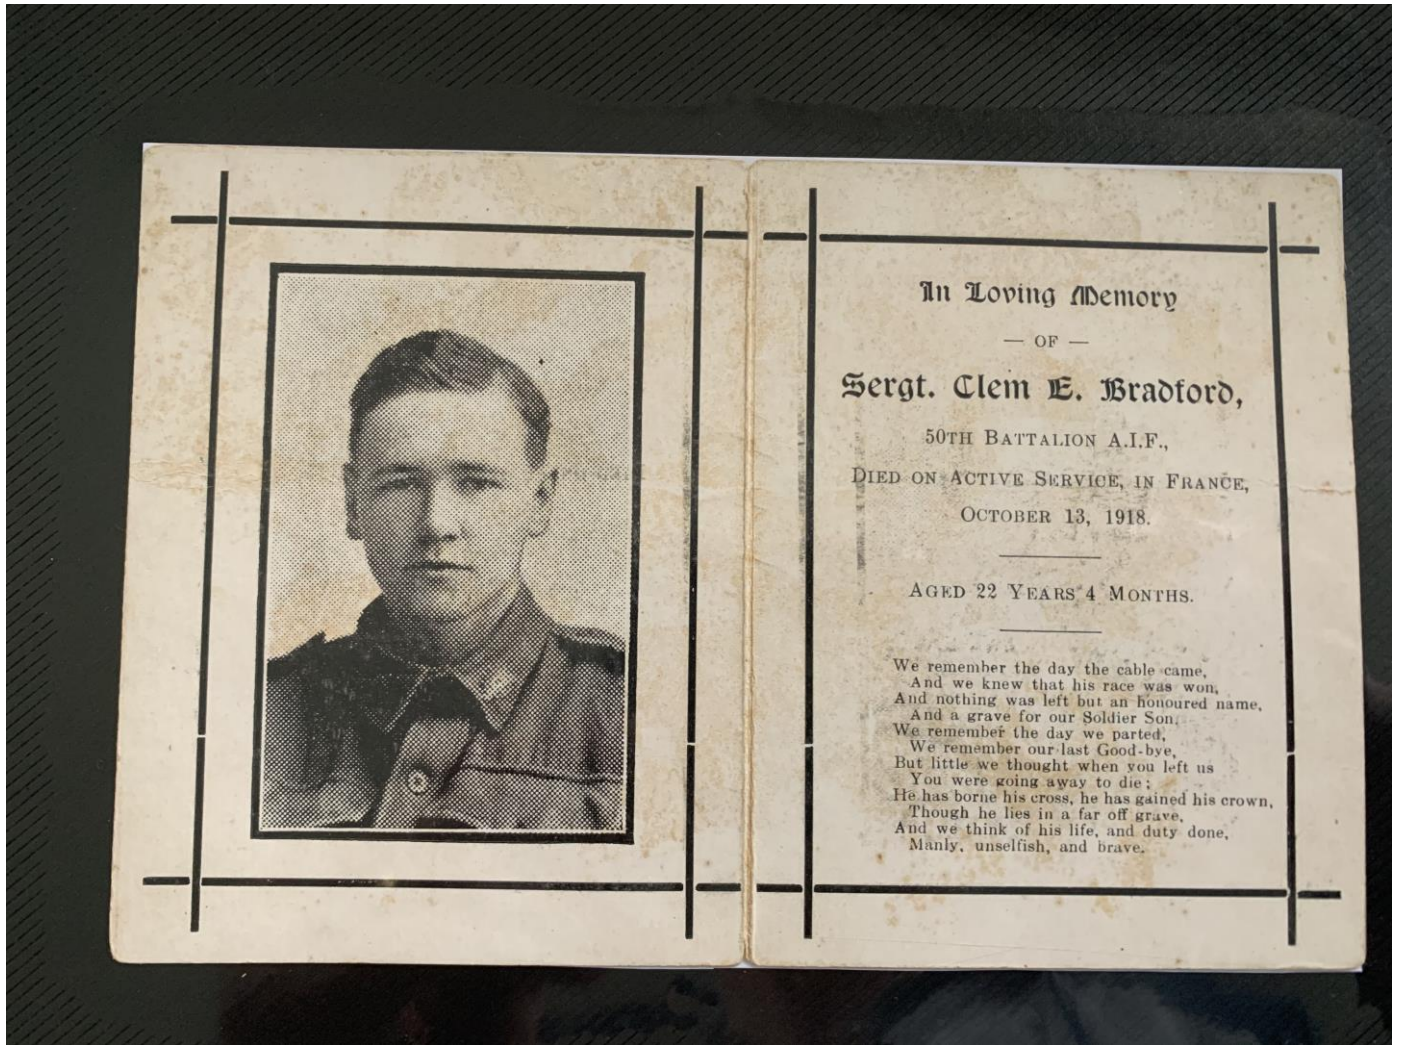 In Loving Memory
— OF —
Sergt. Clem E. Bradford,
50TH BATTALION A.I.F.,
DIED ON ACTIVE SERVICE, IN FRANCE,
OCTOBER 13, 1918.
AGED 22 YEARS 4 MONTHS.
We remember the day the cable came,
And we knew that his race was won,
And nothing was left but an honoured name,
And a grave for our Soldier Son.
We remember the day we parted,
We remember our last Good-bye,
But little we thought when you left us
You were going away to die;
He has borne his cross, he has gained his crown,
Though he lies in a far off grave,
And we think of his life, and duty done,
Manly, unselfish, and brave.